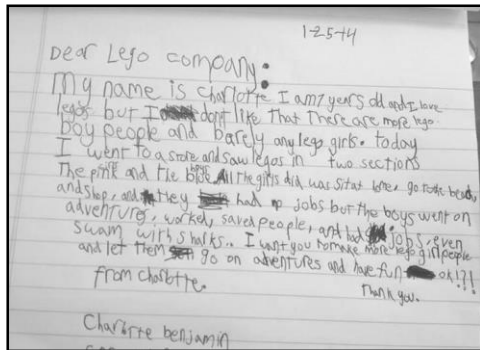 1-25-14
Dear Lego company:
My name is Charlotte I am 7 years old and I love
legos but I don't like that There are more lego
boy people and barely any lego girls. today
I went to a store and saw legos in two sections
The pink and the blue. All the girls did was sit at home, go to the beach,
and shop, and they had no jobs but the boys went on
adventures, worked, saved people, and had jobs, even
swam with sharks.. I want you to make more lego girl people
and let them go on adventures and have fun ok!?!
from charlotte. Thank you.
Charlotte benjamin